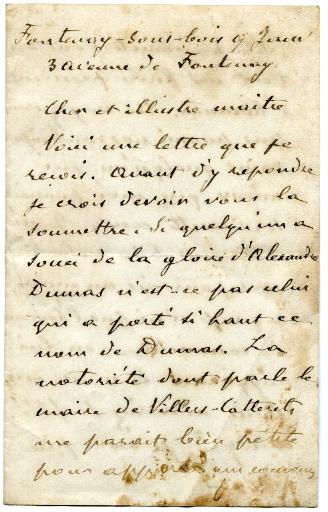 Fontenay-sous-bois 9 Janv
3 avenue de Fontenay
Cher et illustre maître
Voici une lettre que je
reçois. Avant d'y répondre
je crois devoir vous la
soumettre. Si quelqu'un a
souci de la gloire d'Alexandre
Dumas n'est-ce pas celui
qui a porté si haut ce
nom de Dumas. La
notoriété dont parle le
maire de Villers-Cotterets
me parait bien petite
pour apporter un concours